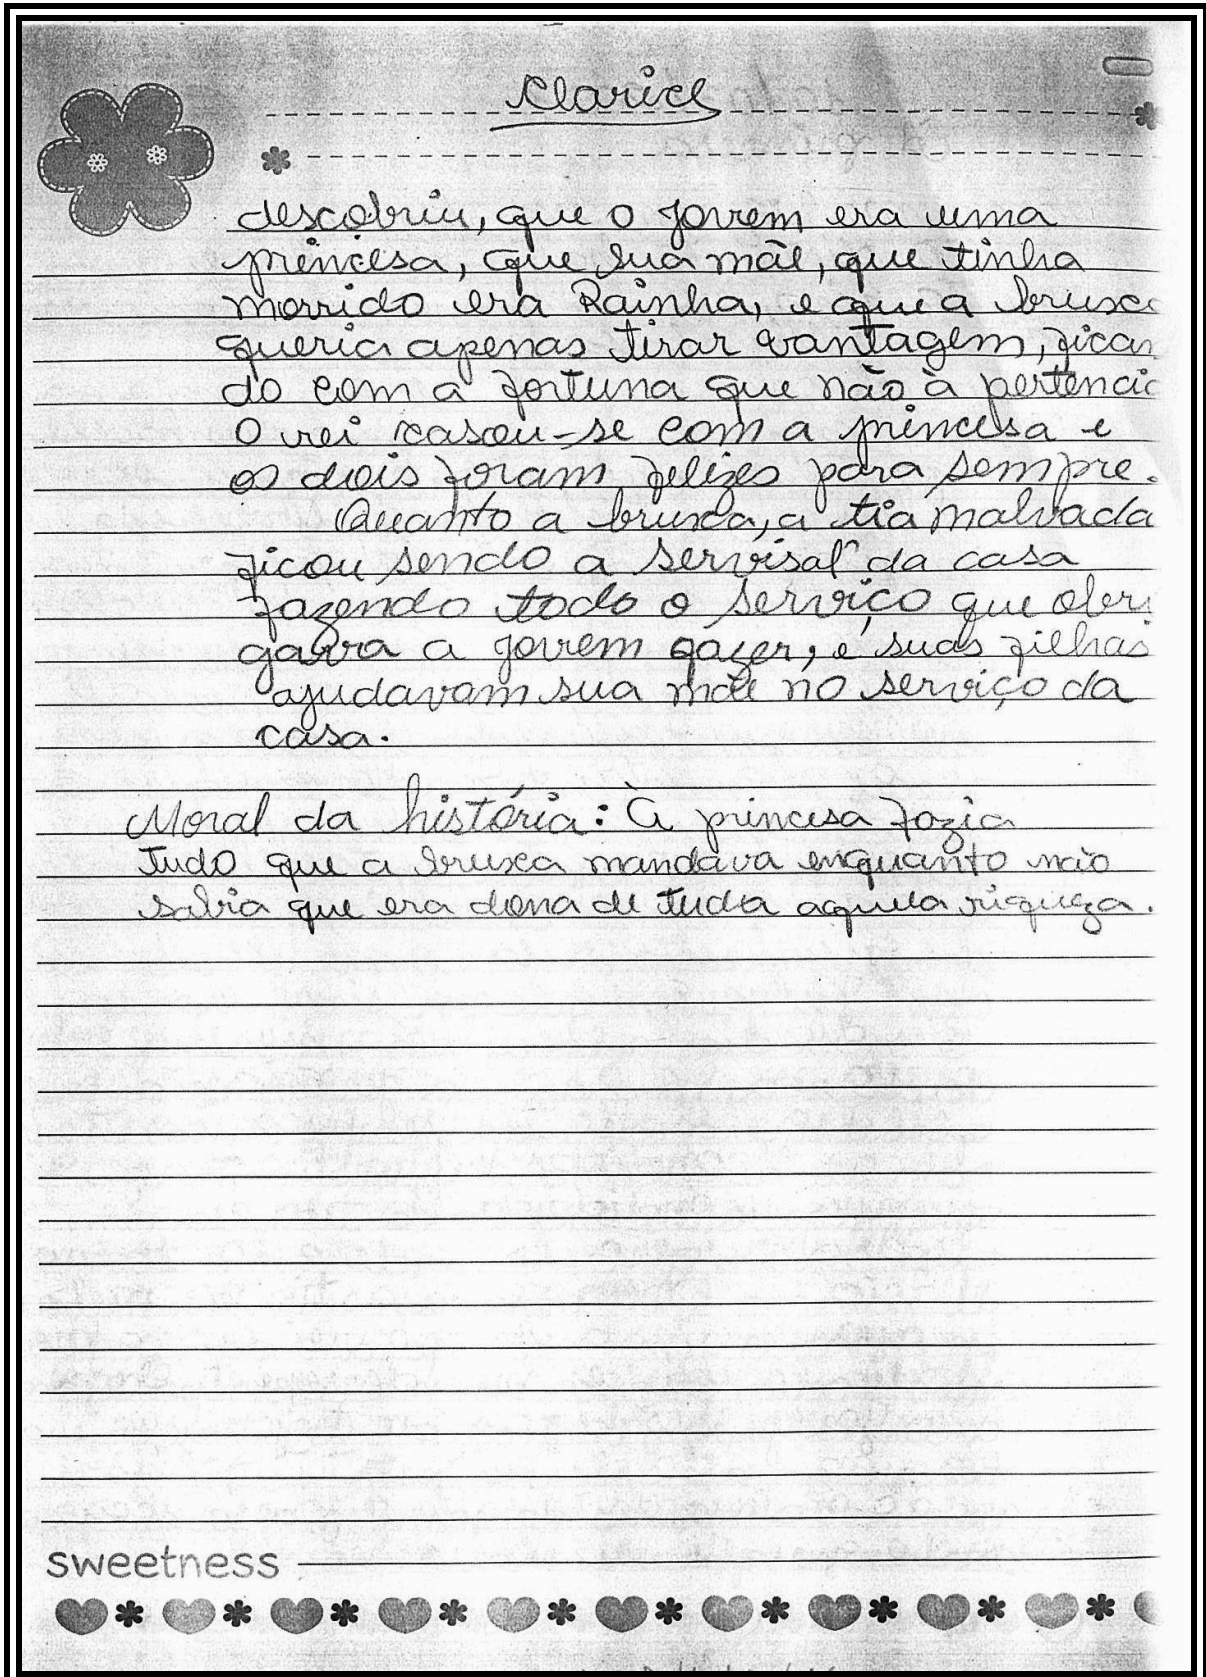 Clarice
descobriu, que o jovem era uma
princesa, que sua mãe, que tinha
morrido era Rainha, e que a bruxa
queria apenas tirar vantagem, fican
do com a fortuna que não à pertencia
O rei casou-se com a princesa e
os dois foram felizes para sempre.
Quanto a bruxa, a tia malvada
ficou sendo a "servisal" da casa
fazendo todo o serviço que obri
gava a jovem fazer, e suas filhas
ajudavam sua mãe no serviço da
casa.
Moral da história: À princesa fazia
tudo que a bruxa mandava enquanto não
sabia que era dona de tuda aquela riqueza.
sweetness